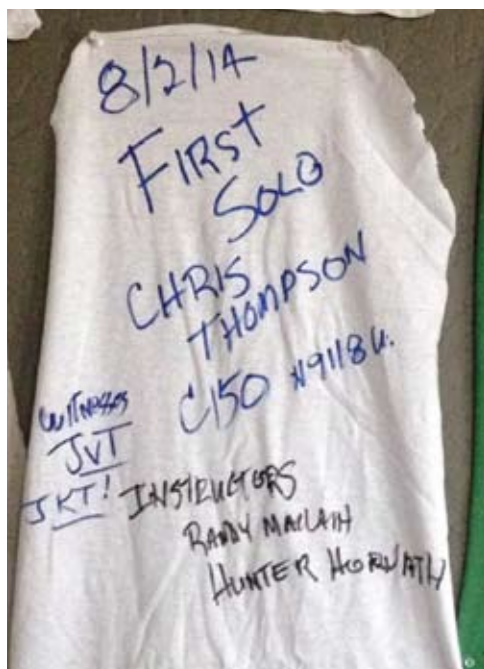 8/2/14
FIRST
SOLO
CHRIS
THOMPSON
C150 N9118U.
WITNESSES
JVT
JKT!
INSTRUCTORS
RANDY MACLAIN
HUNTER HORVATH